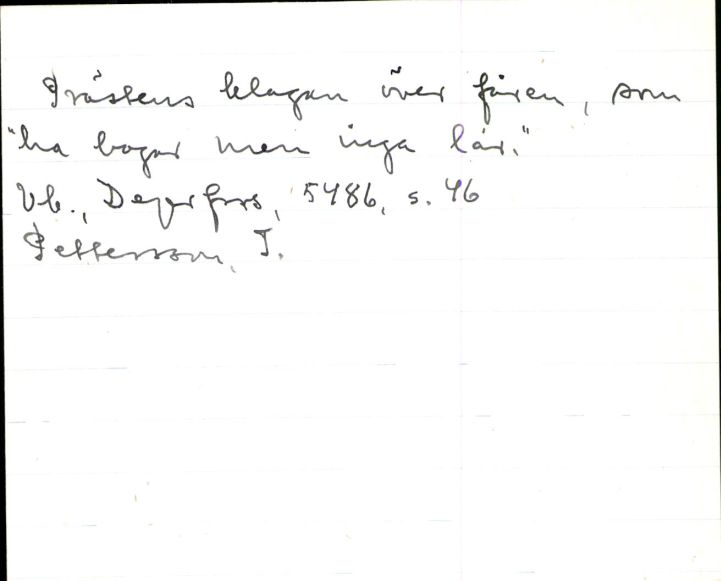 Prästens klagan över fåren, som
"ha bogar men inga lår."
Vb., Degerfors, 5486, s. 46
Pettersson, J.